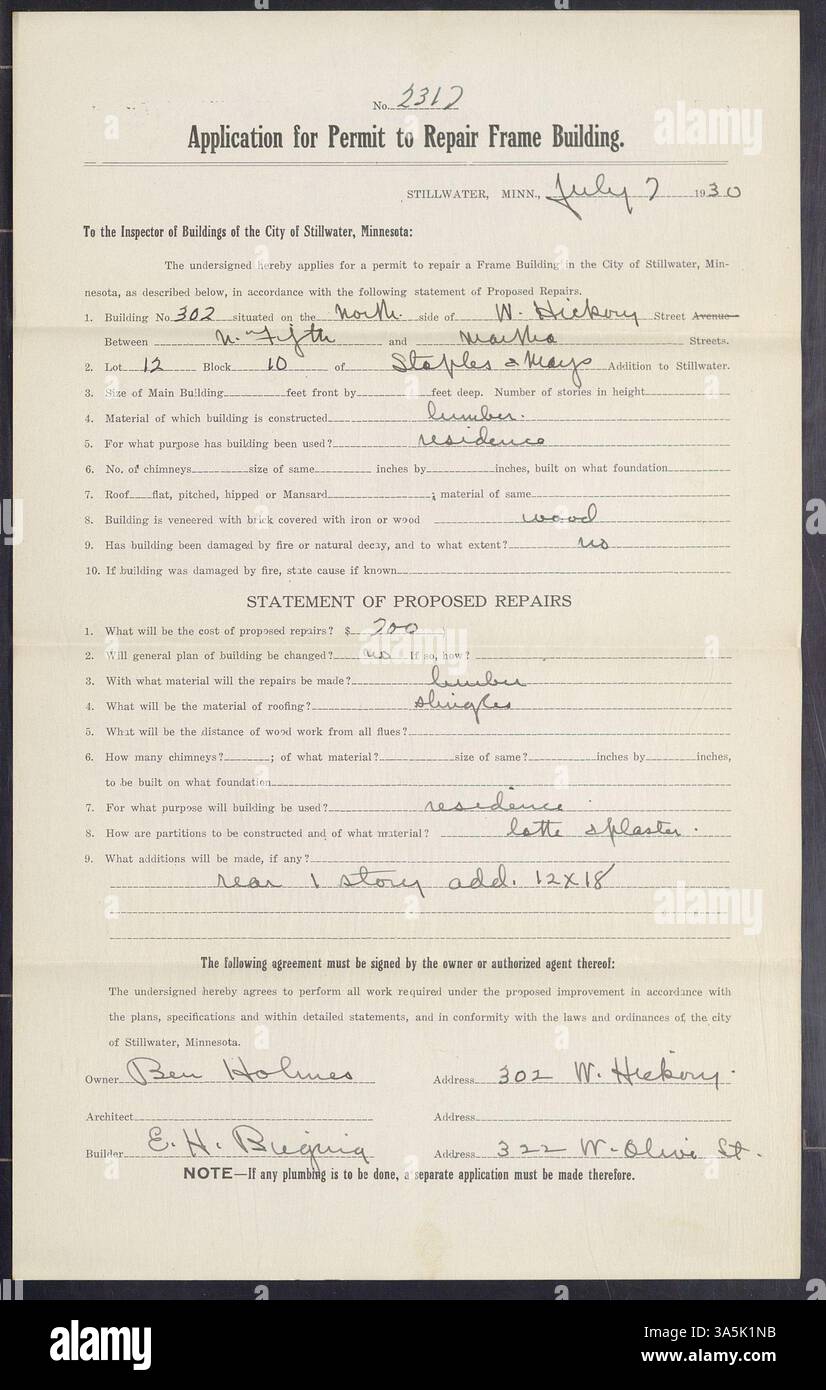 No. 2317
Application for Permit to Repair Frame Building.
STILLWATER, MINN., July 7 1930
To the Inspector of Buildings of the City of Stillwater, Minnesota:
The undersigned hereby applies for a permit to repair a Frame Building in the City of Stillwater, Min-
nesota, as described below, in accordance with the following statement of Proposed Repairs.
1. Building No. 302 situated on the North side of W. Hickory Street Avenue
Between N. Fifth and Martha Streets.
2. Lot 12 Block 10 of Staples & Mays Addition to Stillwater.
3. Size of Main Building feet front by feet deep. Number of stories in height
4. Material of which building is constructed lumber.
5. For what purpose has building been used? residence
6. No. of chimneys size of same inches by inches, built on what foundation
7. Roof flat, pitched, hipped or Mansard ; material of same
8. Building is veneered with brick covered with iron or wood wood
9. Has building been damaged by fire or natural decay, and to what extent? no
10. If building was damaged by fire, state cause if known
STATEMENT OF PROPOSED REPAIRS
1. What will be the cost of proposed repairs? $ 200
2. Will general plan of building be changed? no If so, how?
3. With what material will the repairs be made? lumber
4. What will be the material of roofing? shingles
5. What will be the distance of wood work from all flues?
6. How many chimneys? ; of what material? size of same? inches by inches,
to be built on what foundation
7. For what purpose will building be used? residence
8. How are partitions to be constructed and of what material? latte & plaster.
9. What additions will be made, if any?
rear 1 story add. 12x18
The following agreement must be signed by the owner or authorized agent thereof:
The undersigned hereby agrees to perform all work required under the proposed improvement in accordance with
the plans, specifications and within detailed statements, and in conformity with the laws and ordinances of the city
of Stillwater, Minnesota.
Owner Ben Holmes Address 302 W. Hickory.
Architect Address
Builder E. H. Address 322 W. Olive St.
NOTE—If any plumbing is to be done, a separate application must be made therefore.
alamy
Image ID: 3A5K1NB
www.alamy.com